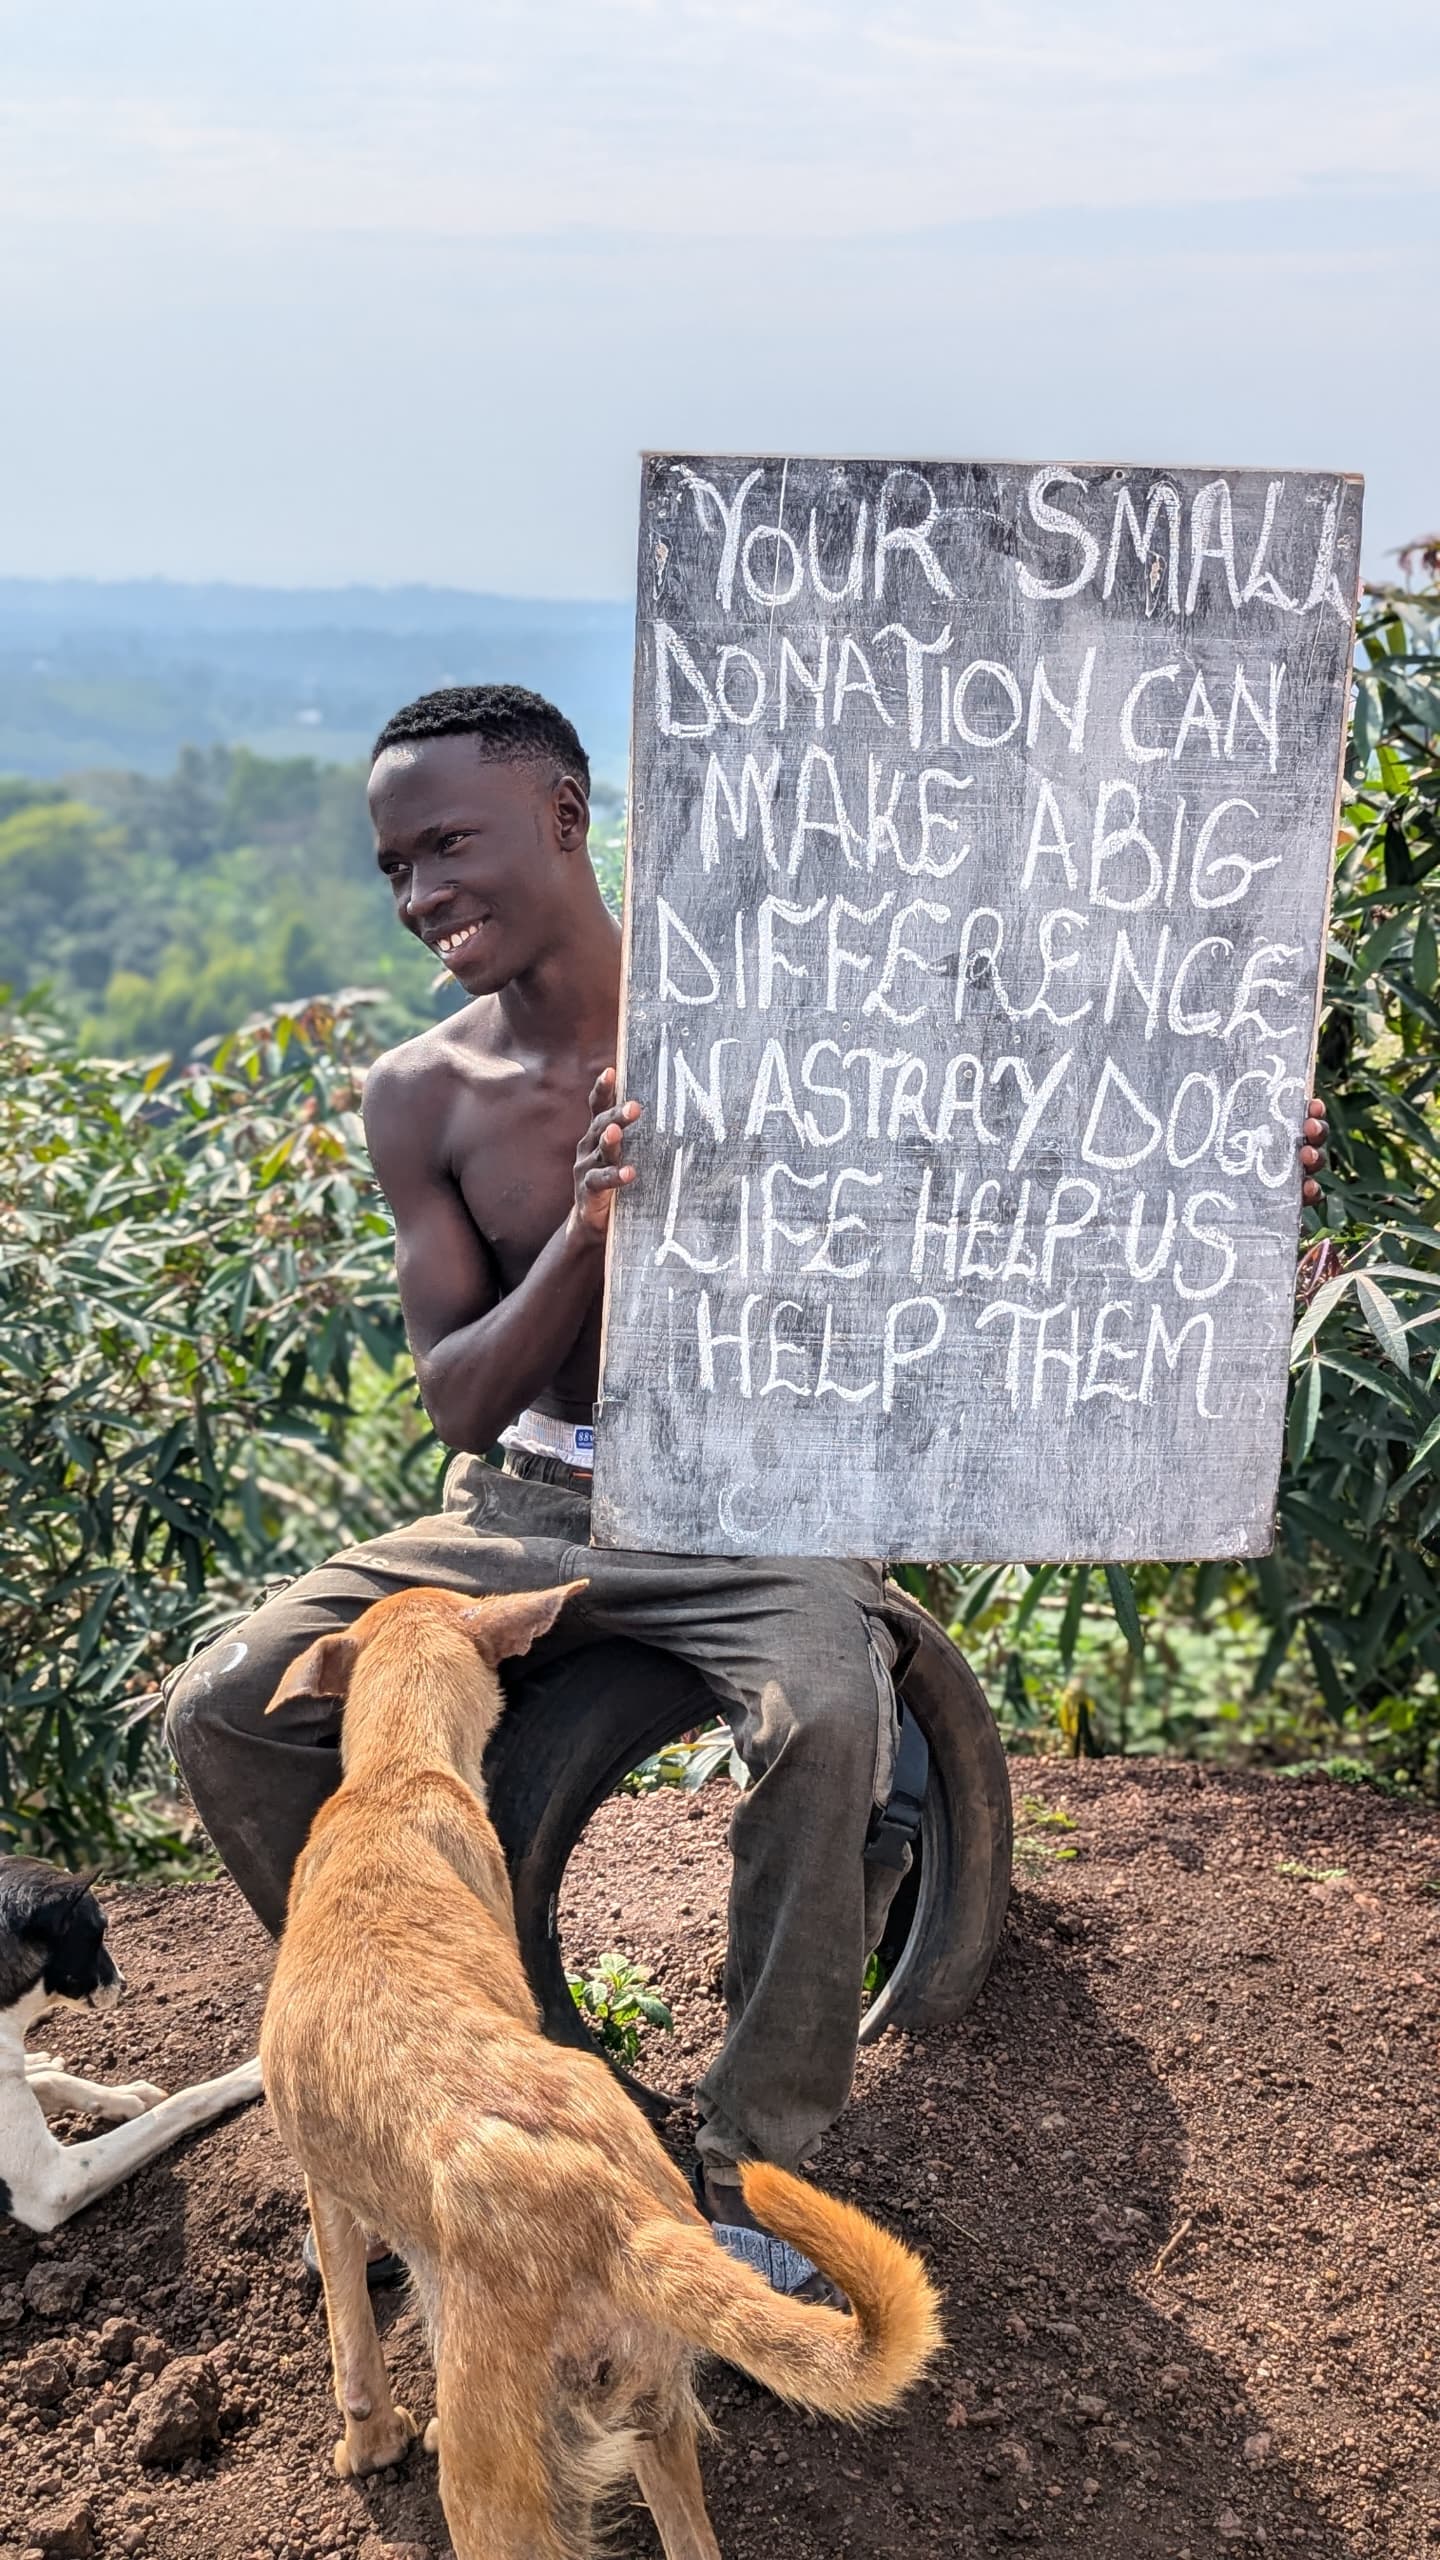 YOUR SMALL
DONATION CAN
MAKE ABIG
DIFFERENCE
IN ASTRAY DOG'S
LIFE HELP US
HELP THEM